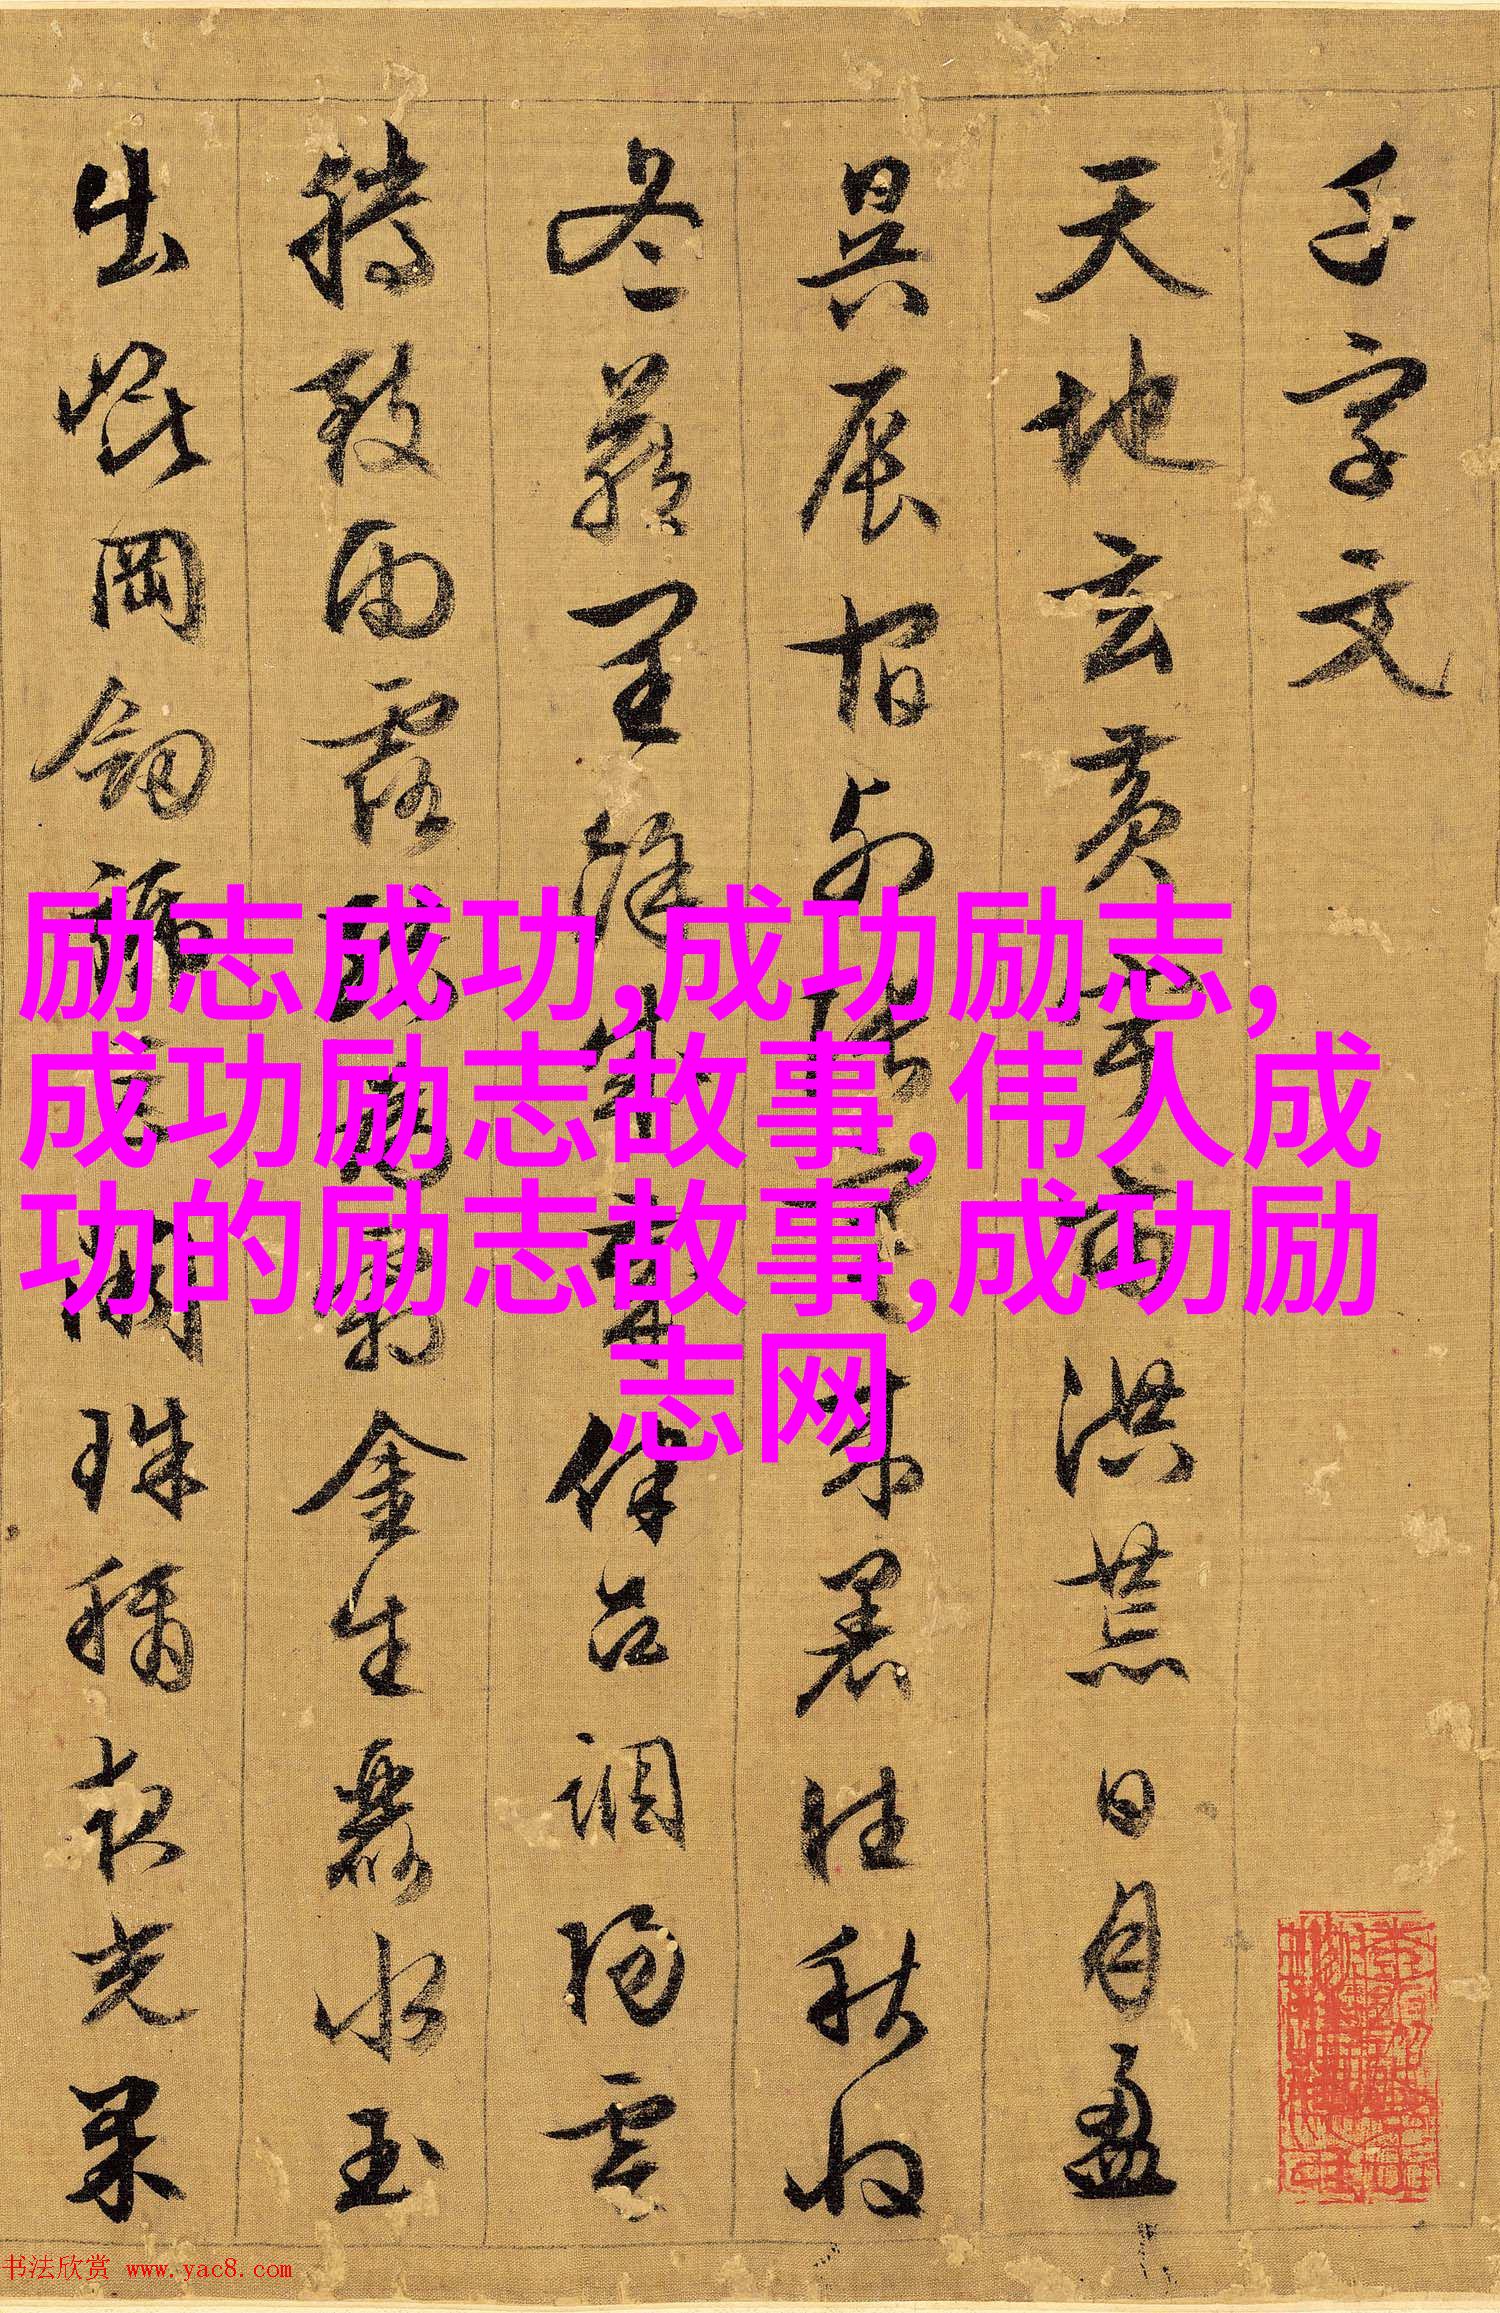 千字文
天地玄黄宇宙洪荒日月盈
昃辰宿列張寒来暑往秋收
冬藏閏餘成歲律吕調陽雲
騰致雨露結為霜金生麗水玉
出崑岡劍號巨闕珠稱夜光果
励志成功,成功励志,
成功励志故事,伟人成
功的励志故事,成功励
志网
书法欣赏 www.yac8.com